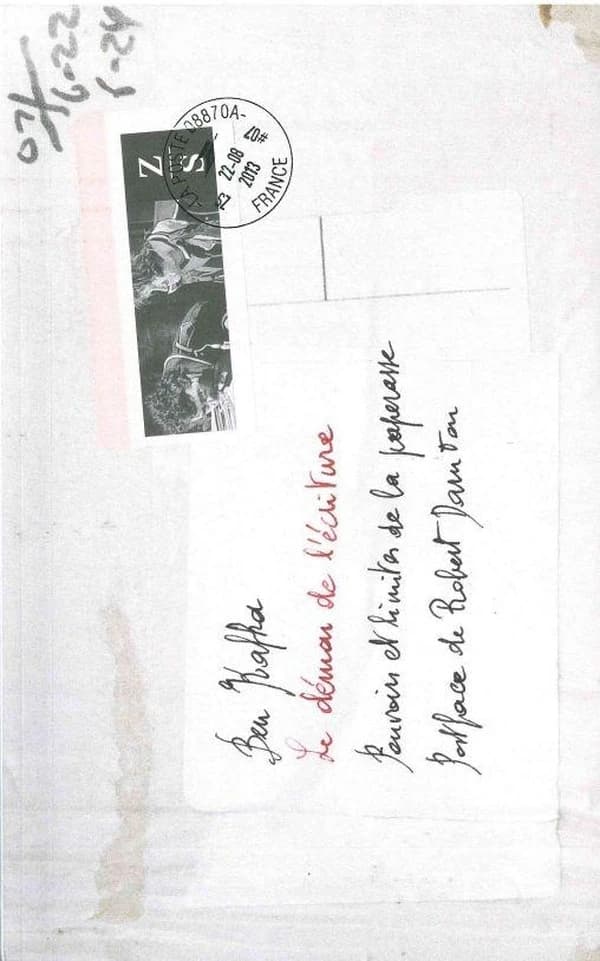 07/
6-22
6-24
ZS
LA POSTE 08870A-
22-08
2013
FRANCE
#07
Ben Kafka
Le démon de l'écriture
Pouvoirs et limites de la paperasse
Postface de Robert Darnton